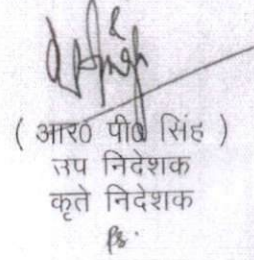 ( आर0 पी0 सिंह )
उप निदेशक
कृते निदेशक